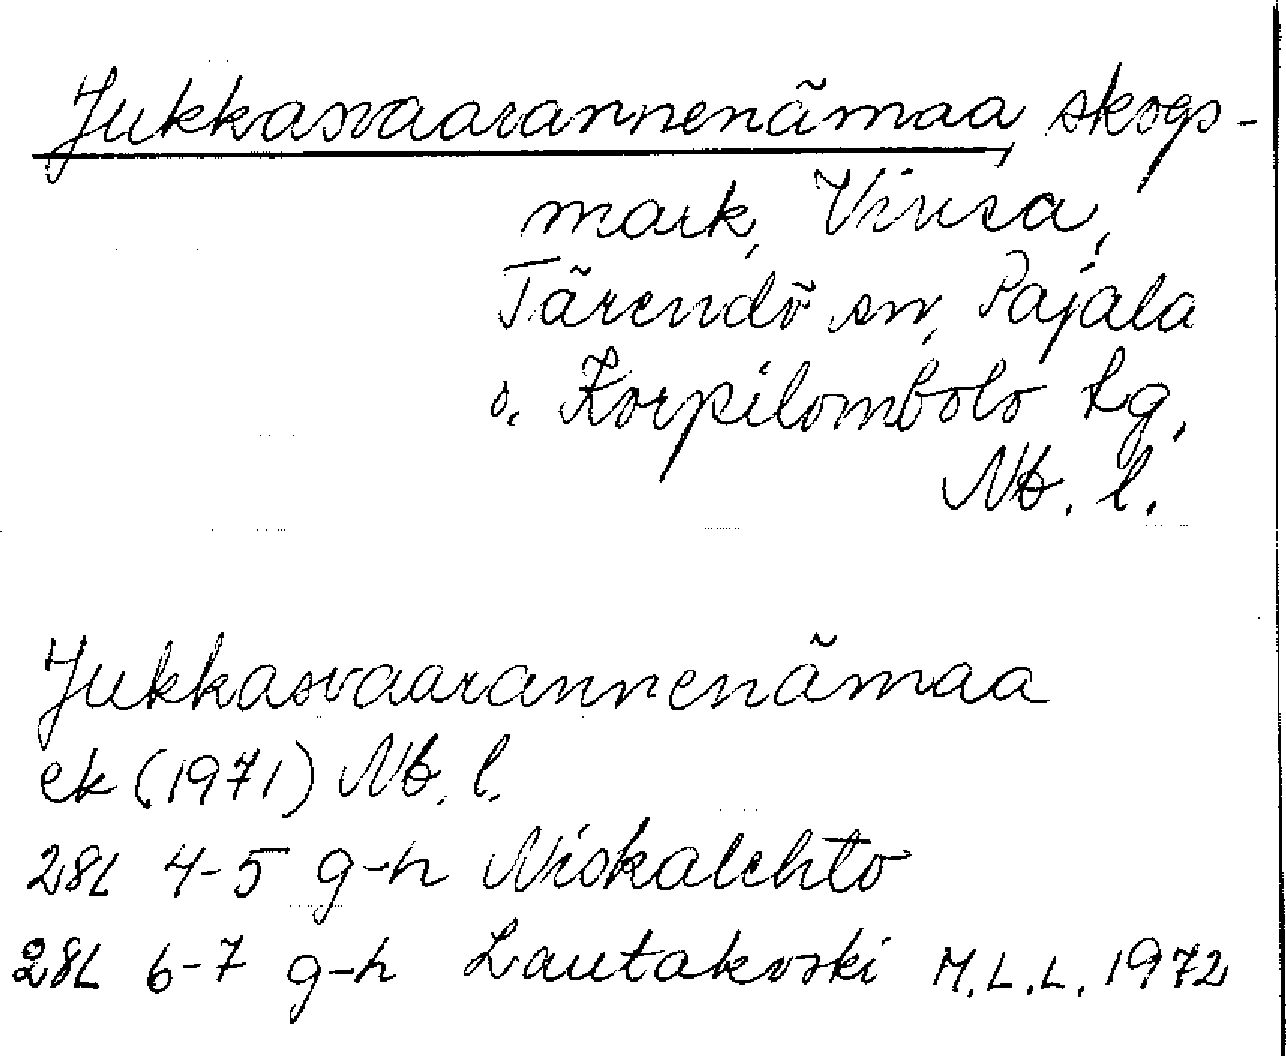 Jukkasvaarannenämaa skogs-
mark, Vinsa,
Tärendö sn, Pajala
o. Korpilombolo tg,
Nb. l.
Jukkasvaarannenämaa
ek (1971) Nb. l.
28L 4-5 g-h Niskalehto
28L 6-7 g-h Lautakoski M.L.L. 1972